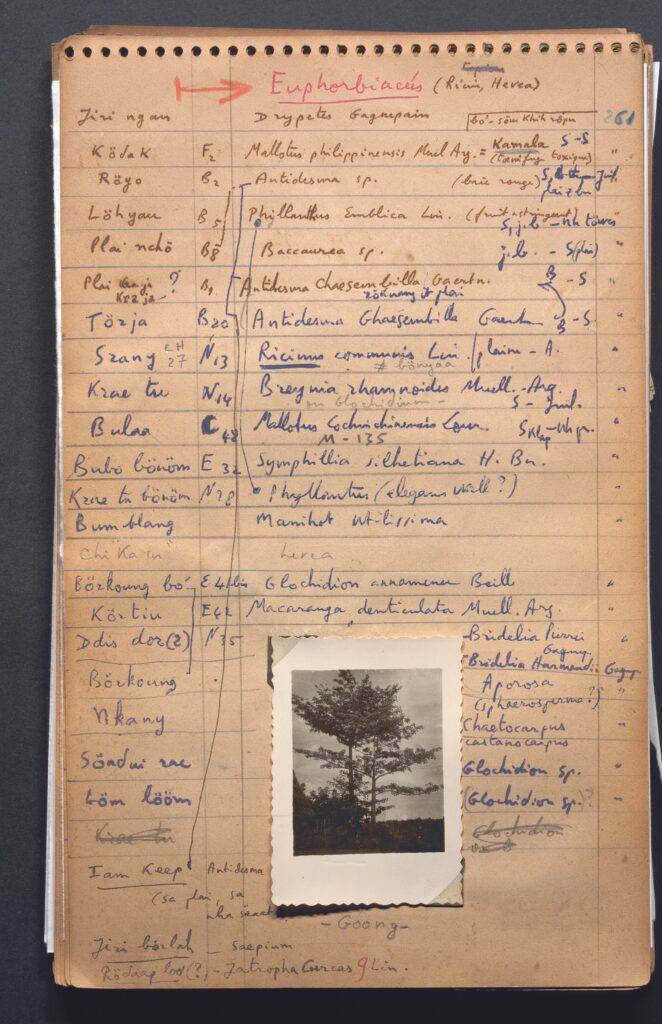 Euphorbiacés (Ricin, Hevea)
Jiri ngan Drypetes Gagnepain bo'- söm 261
Ködak F2 Mallotus philippinensis Muel Arg. = Kamala S - S "
(toenifuge toxique)
Röyo B2 Antidesma sp. (baie rouge)
Löhyau B5 Phyllanthus Emblica Lin. (fruit astringent)
S, j.b. - "
Plai nchö B8 Baccaurea sp. j.b. - S (plai) "
Plai ? B9 Antidesma Chaesembilla Gaertn. B - S
Törja B20 Antidesma Ghaesembilla Gaertn B - S "
Srany CH 27 N13 Ricinus communis Lin. / plaine - A. "
≠ bönyaa
Krae tu N14 Breynia rhamnoides Muell. - Arg. "
ou Glochidium - S - Juil.
Bulaa C48 Mallotus Cochinchinensis Lour. "
M - 135
Bubo bönöm E 32 Symphillia silhetiana H. Bn. "
Krae tu bönöm N28 Phyllanthus (elegans Wall ?) "
Bum blang Manihot utilissima "
Chi "Kasu" hevea
Börkoung bö E 41 bis Glochidion annamense Beille "
Körtiu E42 Macaranga denticulata Muell. Arg. "
Ddis dor (?) N35 Bridelia Pierrei Gagnep. "
Börkoung Bridelia Harmandii Gagnep "
Aporosa
Nkany (sphaerosperma ?) "
Chaetocarpus
castanocarpus
Söndui rae Glochidion sp. "
töm lööm (Glochidion sp.) ? "
Krae tu Glochidion
Iam Keep Antidesma
(sa plai, sa
nha
- Goong -
Jiri börlah - Saepium
Rödaap loo (?) - Jatropha Curcas 9 Lin.